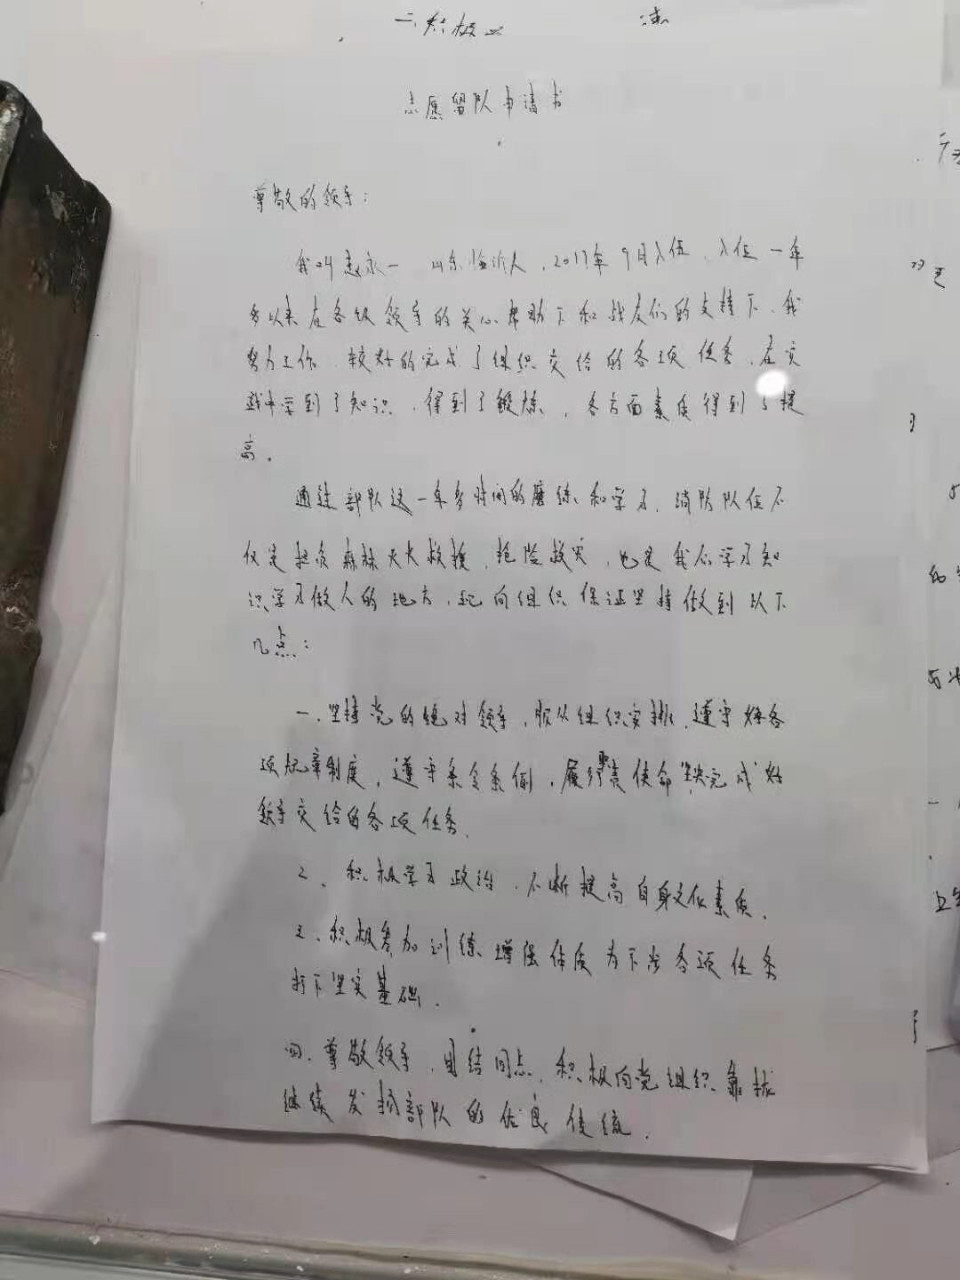 二、积极
志愿留队申请书
尊敬的领导：
我叫赵永一 山东临沂人，2017年9月入伍，入伍一年
多以来在各级领导的关心帮助下和战友们的支持下，我
努力工作，较好的完成了组织交给的各项任务，在实
践中学到了知识，得到了锻炼，各方面素质得到了提
高。
通过部队这一年多时间的磨练和学习，消防队伍不
仅是担负森林灭火救援，抢险救灾，也是我们学习知
识学习做人的地方，向组织保证坚持做到以下
几点：
一、坚持党的绝对领导，服从组织安排，遵守好各
项规章制度，遵守条令条例，履行职责使命坚决完成好
领导交给的各项任务。
2、积极学习政治，不断提高自身文化素质。
三、积极参加训练增强体质为下步各项任务
打下坚实基础。
四、尊敬领导，团结同志，积极向党组织靠拢
继续发扬部队的优良传统。